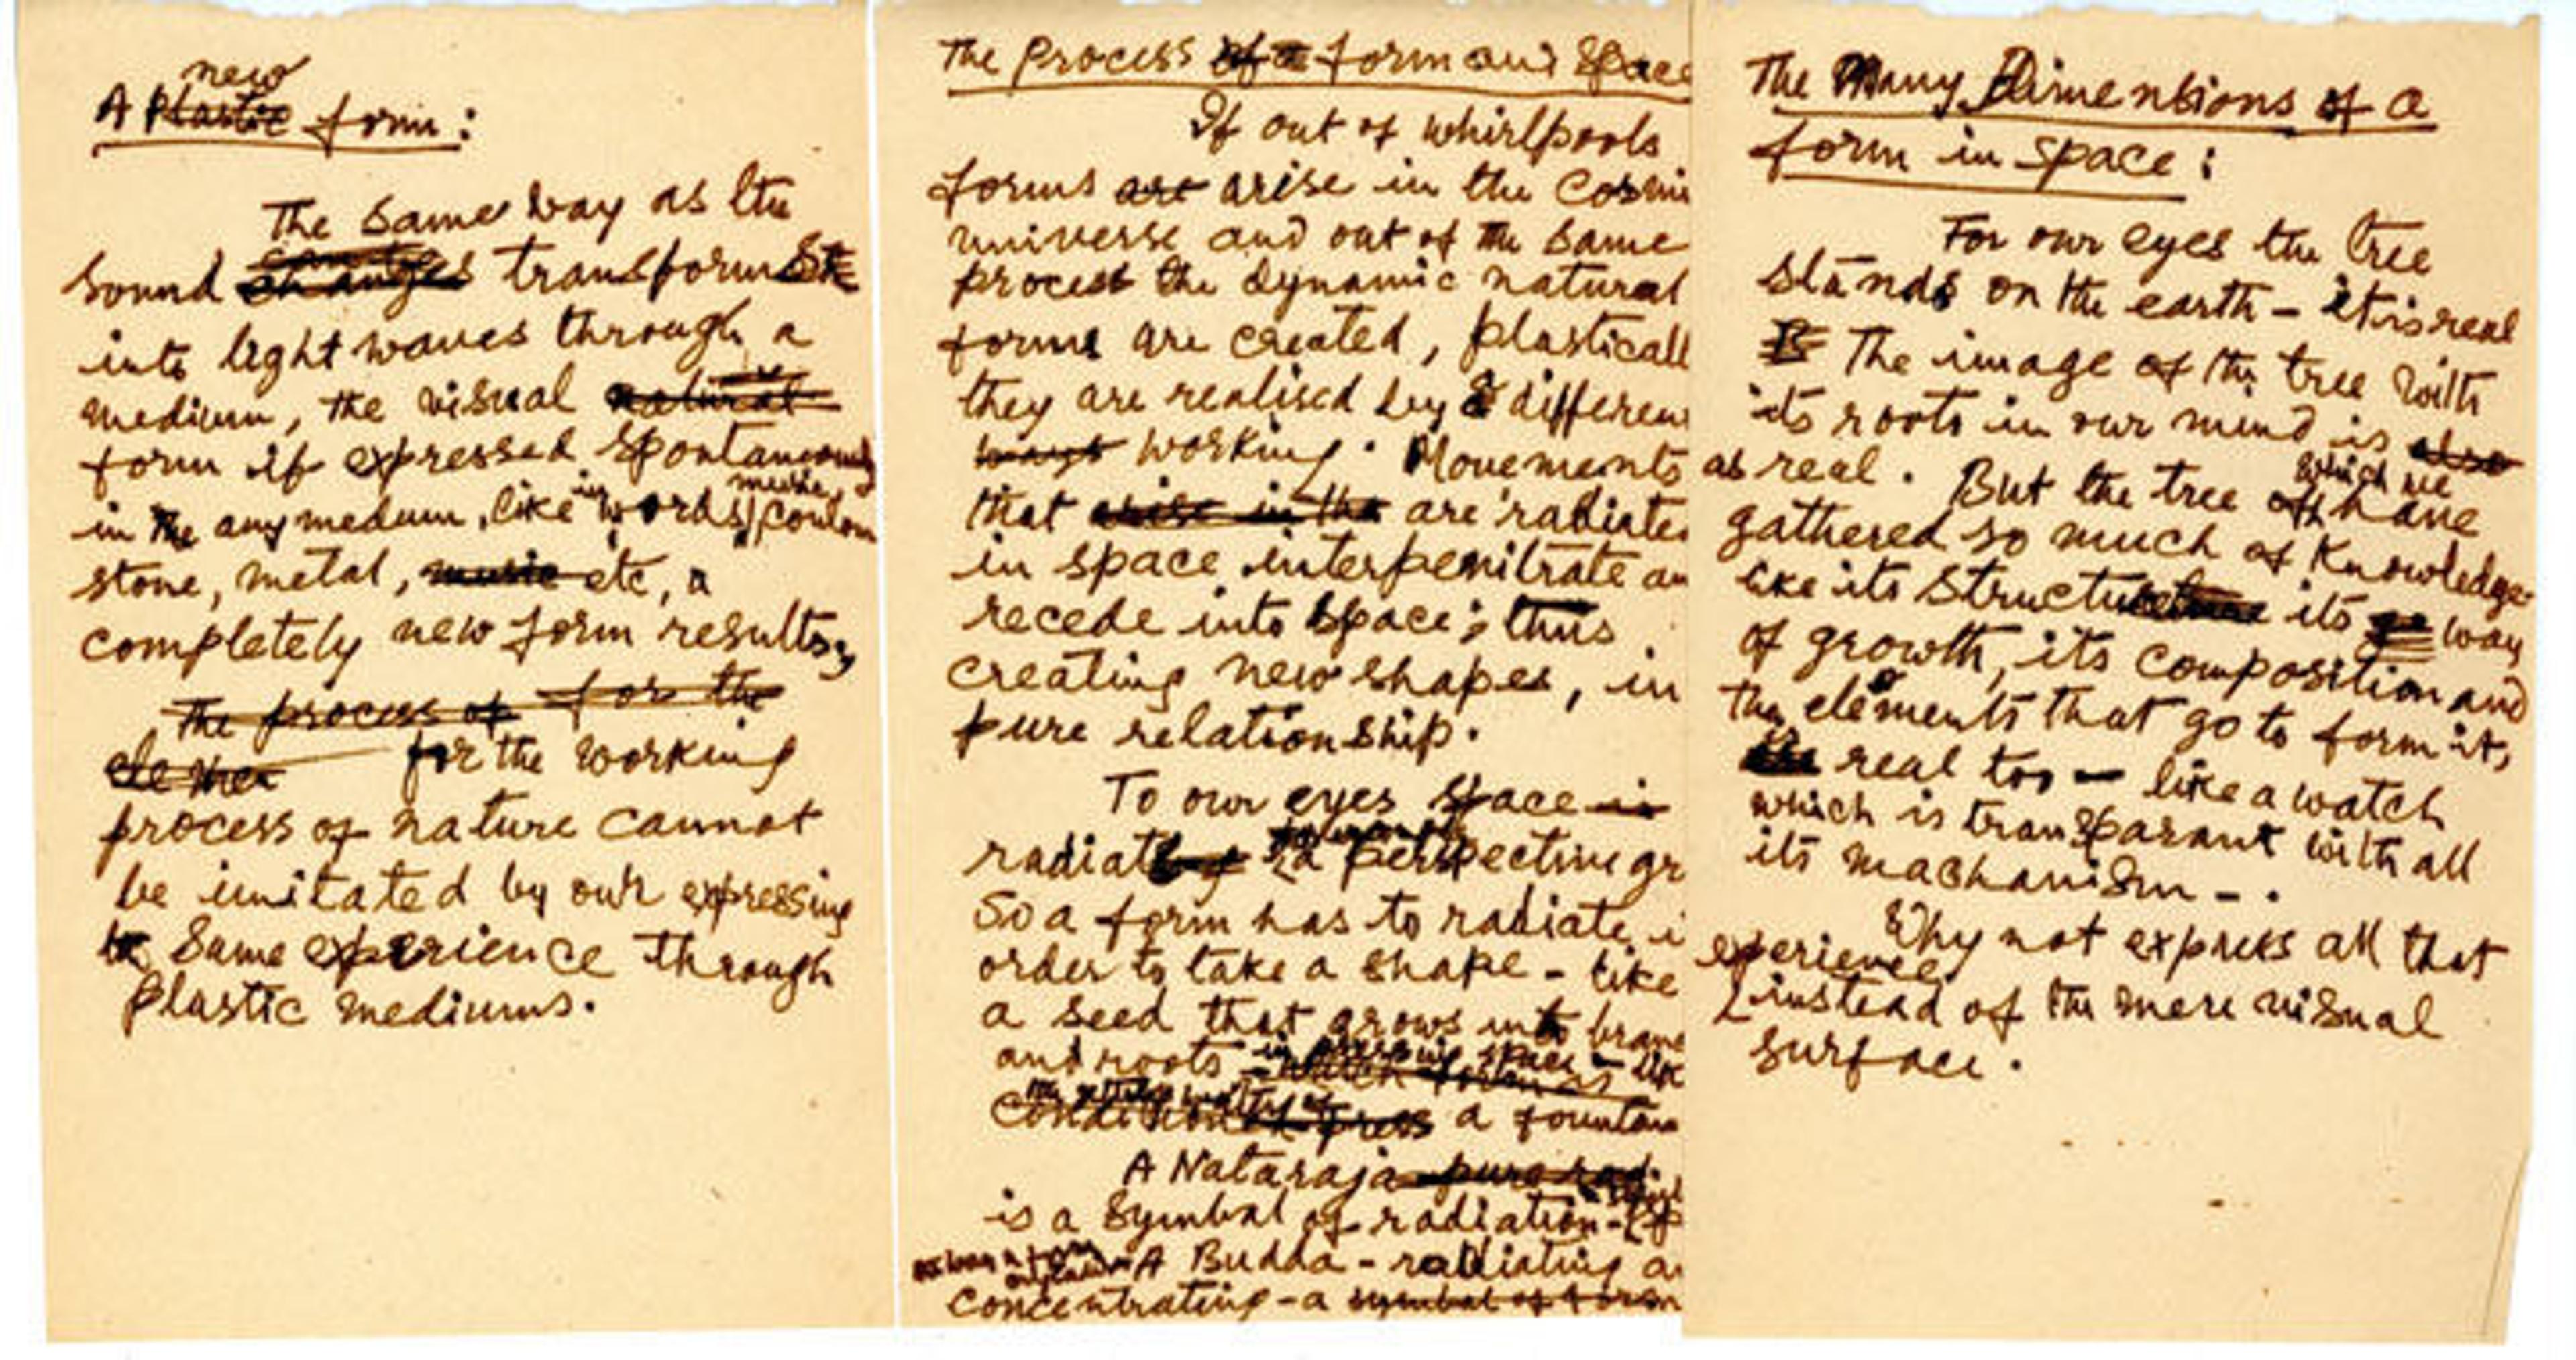 new
A Plastic form :
The same way as the
sound changes transforms
into light waves through a
medium, the visual natural
form if expressed spontaneously
in the any medium, like in words, music,
stone, metal, music etc, a
completely new form results,
The process of for the
for the working
process of nature cannot
be imitated by our expressing
same experience through
plastic mediums.
The Process of a form and Space
If out of whirlpools
forms are arise in the Cosmi
universe and out of the same
process the dynamic natural
forms are created, plasticall
they are realised by a differen
ways working. Movements
that arise in the are radiate
in space interpenitrate an
recede into space; thus
creating new shapes, in
pure relationship.
To our eyes space is
radiat a perspective gr
So a form has to radiate i
order to take a shape - like
a seed that grows into bran
and roots in piercing space - like
a fountain
A Nataraja pure rad
is a Symbol of radiation -
A Budda - radiating a
concentrating - a symbol of form
The Many Dimentions of a
form in space :
For our eyes the tree
stands on the earth - it is real
Is The image of the tree with
its roots in our mind is also
as real. But the tree of which we have
gathered so much of Knowledge
like its structure its way
of growth, its composition and
the elements that go to form it,
are real too - like a watch
which is transparant with all
its machanism - .
Why not express all that
experience
instead of the mere visual
surface.